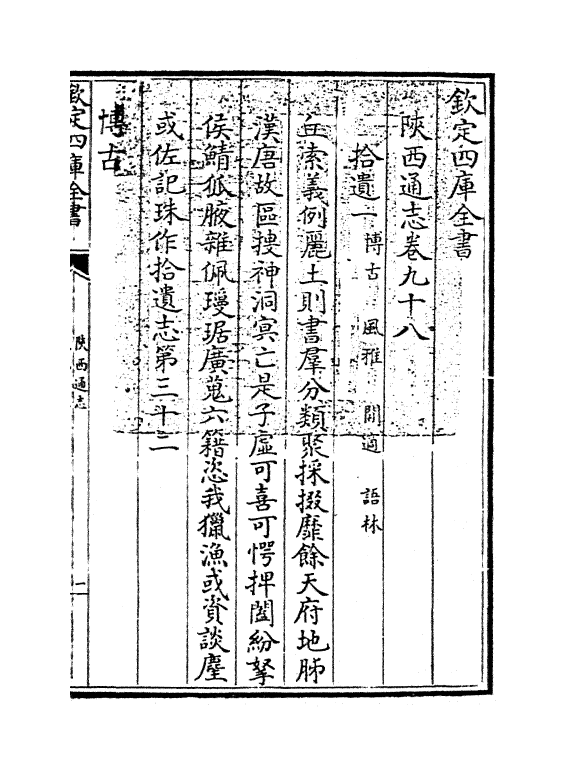 欽定四庫全書
陜西通志卷九十八
拾遺一 博古 風雅 閒適 語林
丘索義例麗土則書羣分類聚採掇靡餘天府地肺
漢唐故區捜神洞冥亡是子虚可喜可愕捭闔紛拏
侯鯖狐腋雜佩瓊琚廣蒐六籍恣我獵漁或資談麈
或佐記珠作拾遺志第三十二
博古
欽定四庫全書
陜西通志
一